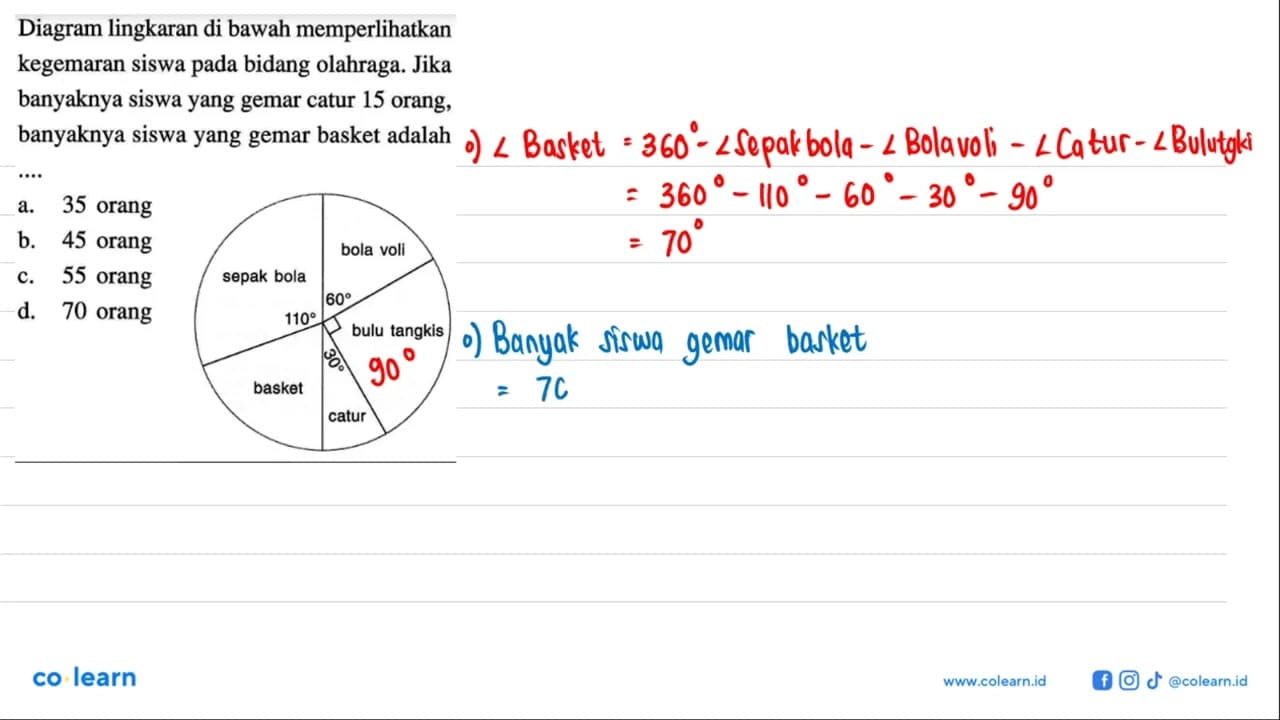 Diagram lingkaran di bawah memperlihatkan
kegemaran siswa pada bidang olahraga. Jika
banyaknya siswa yang gemar catur 15 orang,
banyaknya siswa yang gemar basket adalah
....
a. 35 orang
b. 45 orang
c. 55 orang
d. 70 orang
bola voli
sepak bola
60°
110°
bulu tangkis
30°
90°
basket
catur
o) ∠ Basket = 360° - ∠Sepak bola - ∠ Bola voli - ∠Catur - ∠Bulutgki
= 360° - 110° - 60° - 30° - 90°
= 70°
o) Banyak siswa gemar basket
= 7C
co learn
www.colearn.id
@colearn.id